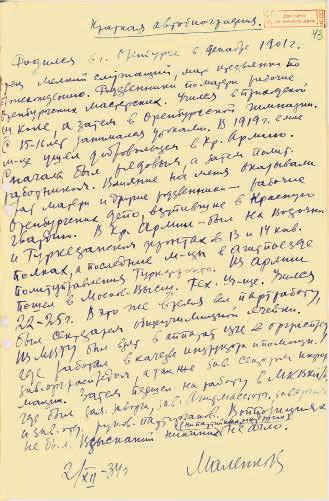 Краткая автобиография.
43
Родился в г. Оренбурге в декабре 1901 г.
отец мелкий служащий, мать
происхождению. Родственники по матери рабочие
Оренбургских мастерских. Учился в городской
школе, а затем в Оренбургской гимназии.
С 15-16 лет занимался уроками. В 1919 г.
ушел добровольцем в Кр. Армию.
Сначала был рядовым, а затем полит.
работником. Влияние на меня оказывали
мать матери и другие родственники — рабочие
Оренбургских депо, вступившие в Красную
гвардию. В Кр. Армии — был на Восточном
и Туркестанском фронтах в 13 и 14 кав.
полках, а последние м-цы в агитпоезде
политуправления Туркфронта. Из армии
пошел в Моск. Высш. Тех. Уч-ще. Учился
22-25 г. В это же время вел партработу,
был секретарем общеучилищной ячейки.
Из МВТУ был взят в аппарат ЦК в
где работал в качестве инструктора и помощн.
зав. орграспредом, а также зав. сектором
Затем перешел на работу в МК ВКП(б)
где был зав. орготд., зав. Агитмассотд.,
и зав. отд. руков. парторганов. В оппозициях
не был. Взысканий не было.
2/XII - 34 г.
Маленков